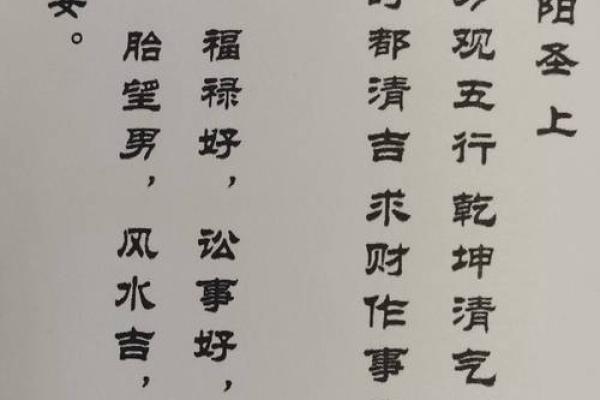 阳圣上
观五行乾坤清气
都清吉求财作事
福禄好，讼事好，
胎望男，风水吉，
安。